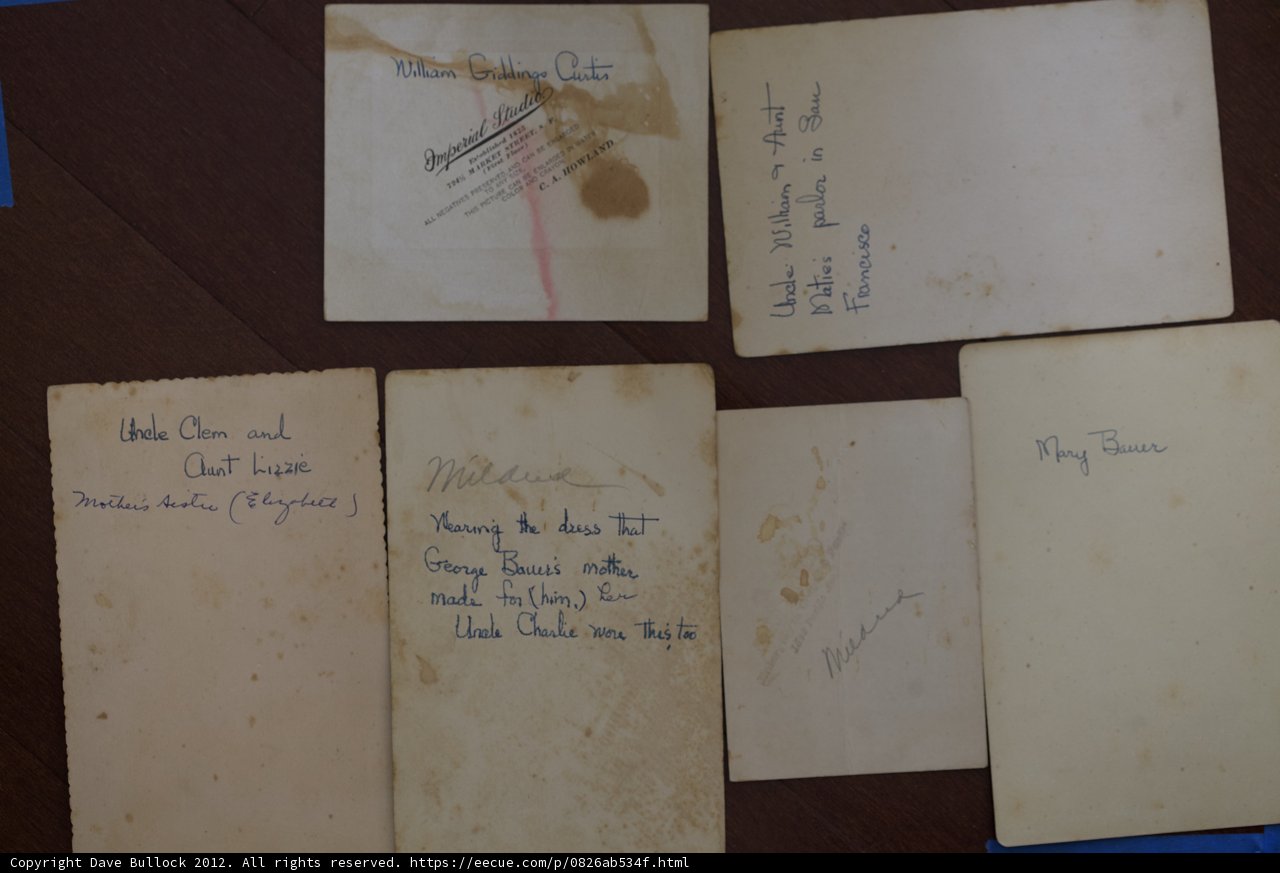 William Giddings Curtis
Imperial Studio
Established 1825
724½ MARKET STREET, S. F.
(First Floor)
ALL NEGATIVES PRESERVED, AND CAN BE ENLARGED
TO ANY SIZE.
THIS PICTURE CAN BE ENLARGED IN WATER
COLOR AND CRAYON.
C. A. HOWLAND.
Uncle William & Aunt
Matie's parlor in San
Francisco
Uncle Clem and
Aunt Lizzie
Mother's sister (Elizabeth)
Mildred
Wearing the dress that
George Bauer's mother
made for (him,) her
Uncle Charlie wore this, too
Mildred
Mary Bauer
Copyright Dave Bullock 2012. All rights reserved. https://eecue.com/p/0826ab534f.html